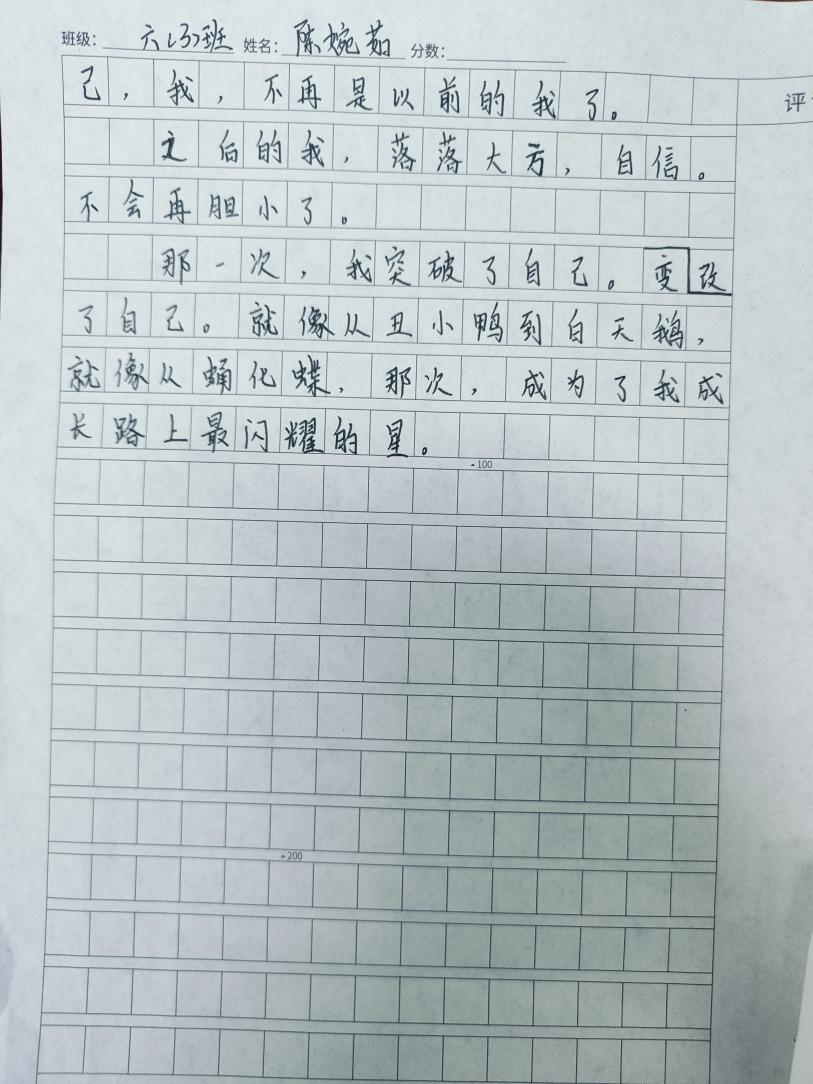 班级： 六(3)班 姓名： 陈婉茹 分数：
评
己，我，不再是以前的我了。
之后的我，落落大方，自信。
不会再胆小了。
那一次，我突破了自己。变改
了自己。就像从丑小鸭到白天鹅，
就像从蛹化蝶，那次，成为了我成
长路上最闪耀的星。
100
200